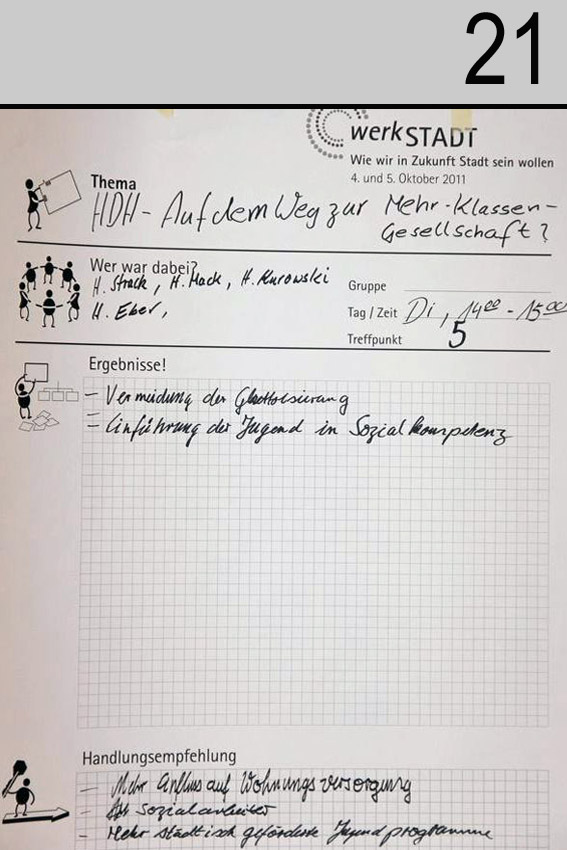 21
werkSTADT
Wie wir in Zukunft Stadt sein wollen
4. und 5. Oktober 2011
Thema
HDH - Auf dem Weg zur Mehr-Klassen-
Gesellschaft?
Wer war dabei?
H. Strack, H. Mack, H. Kurowski
H. Eber,
Gruppe
Tag / Zeit Di, 1400 - 1500
Treffpunkt 5
Ergebnisse!
- Vermeidung der Ghettoisierung
- Einführung der Jugend in Sozialkompetenz
Handlungsempfehlung
- Mehr Einfluss auf Wohnungsversorgung
- Sozialarbeiter
- Mehr städtisch geförderte Jugendprogramme